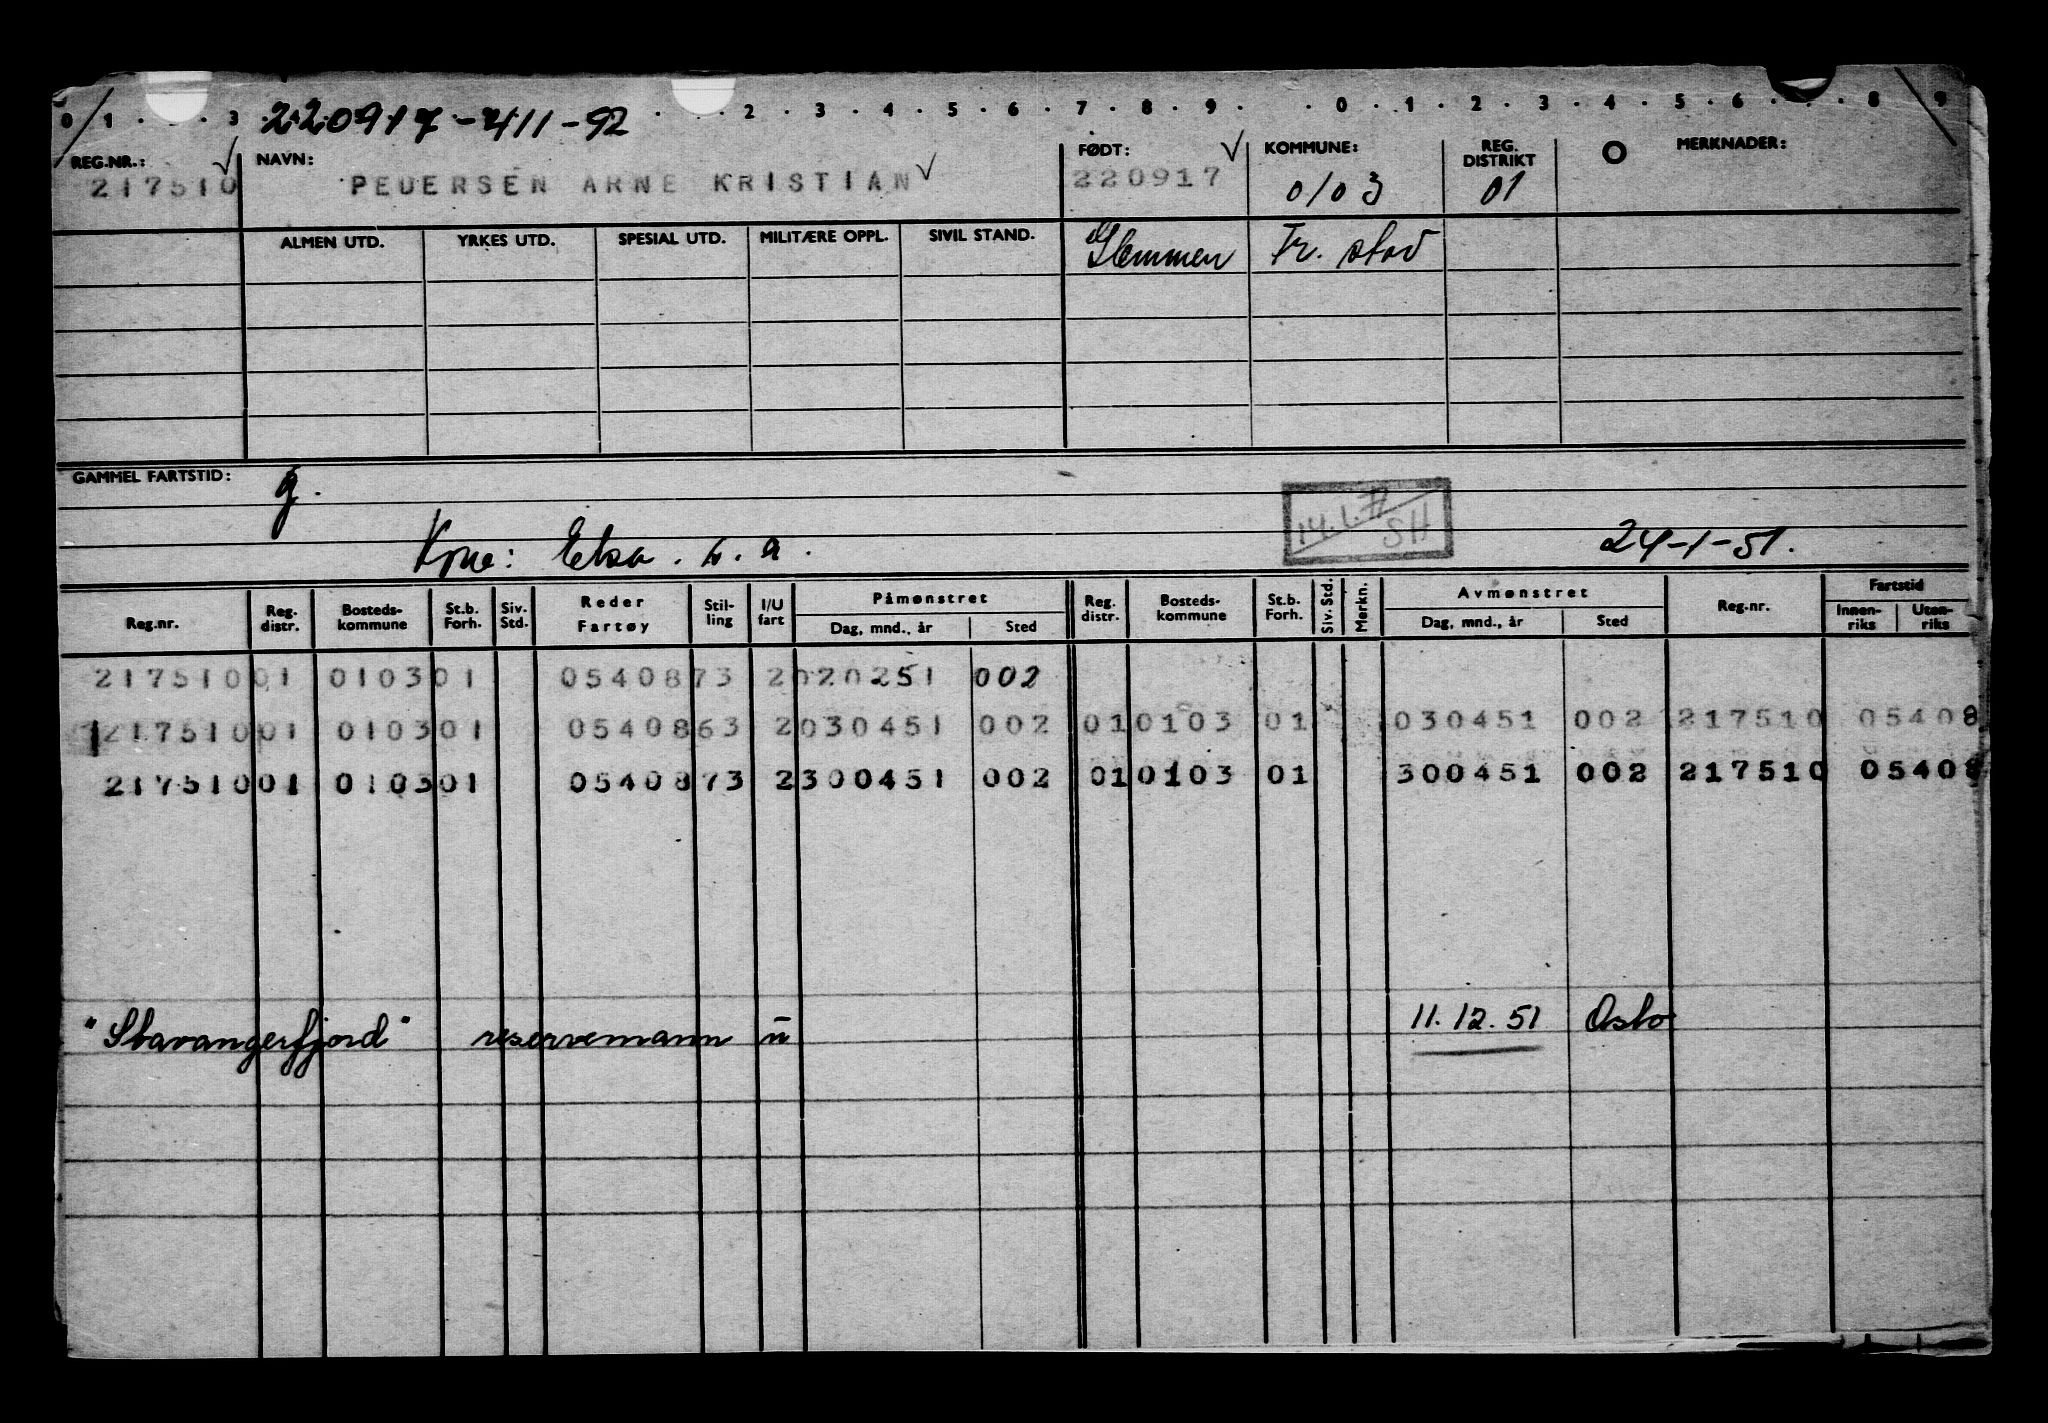 0 1 . . . 3 220917-411-92 . . 2 . 3 . 4 . 5 . 6 . 7 . 8 . 9 . . 0 . 1 . 2 . 3 . 4 . 5 . 6 . . . 8 . 9
REG.NR.: NAVN: FØDT: KOMMUNE: REG. DISTRIKT O MERKNADER:
217510 PEDERSEN ARNE KRISTIAN 220917 0103 01
ALMEN UTD. YRKES UTD. SPESIAL UTD. MILITÆRE OPPL. SIVIL STAND. Glemmen Fr. stad
GAMMEL FARTSTID: g.
14.1.71 SH
Kone: Elsa. s. a. 24-1-51.
Reg.nr. Reg. distr. Bosteds-kommune St.b. Forh. Siv. Std. Reder Fartøy Stil-ling I/U fart Påmønstret Dag, mnd., år Sted Reg. distr. Bosteds-kommune St.b. Forh. Siv. Std. Merkn. Avmønstret Dag, mnd., år Sted Reg.nr. Fartstid Innen-riks Uten-riks
217510 01 0103 01 05408 73 2 020251 002
217510 01 0103 01 05408 63 2 030451 002 01 0103 01 030451 002 217510 05408
217510 01 0103 01 05408 73 2 300451 002 01 0103 01 300451 002 217510 05408
"Stavangerfjord" reservemann u 11.12.51 Oslo